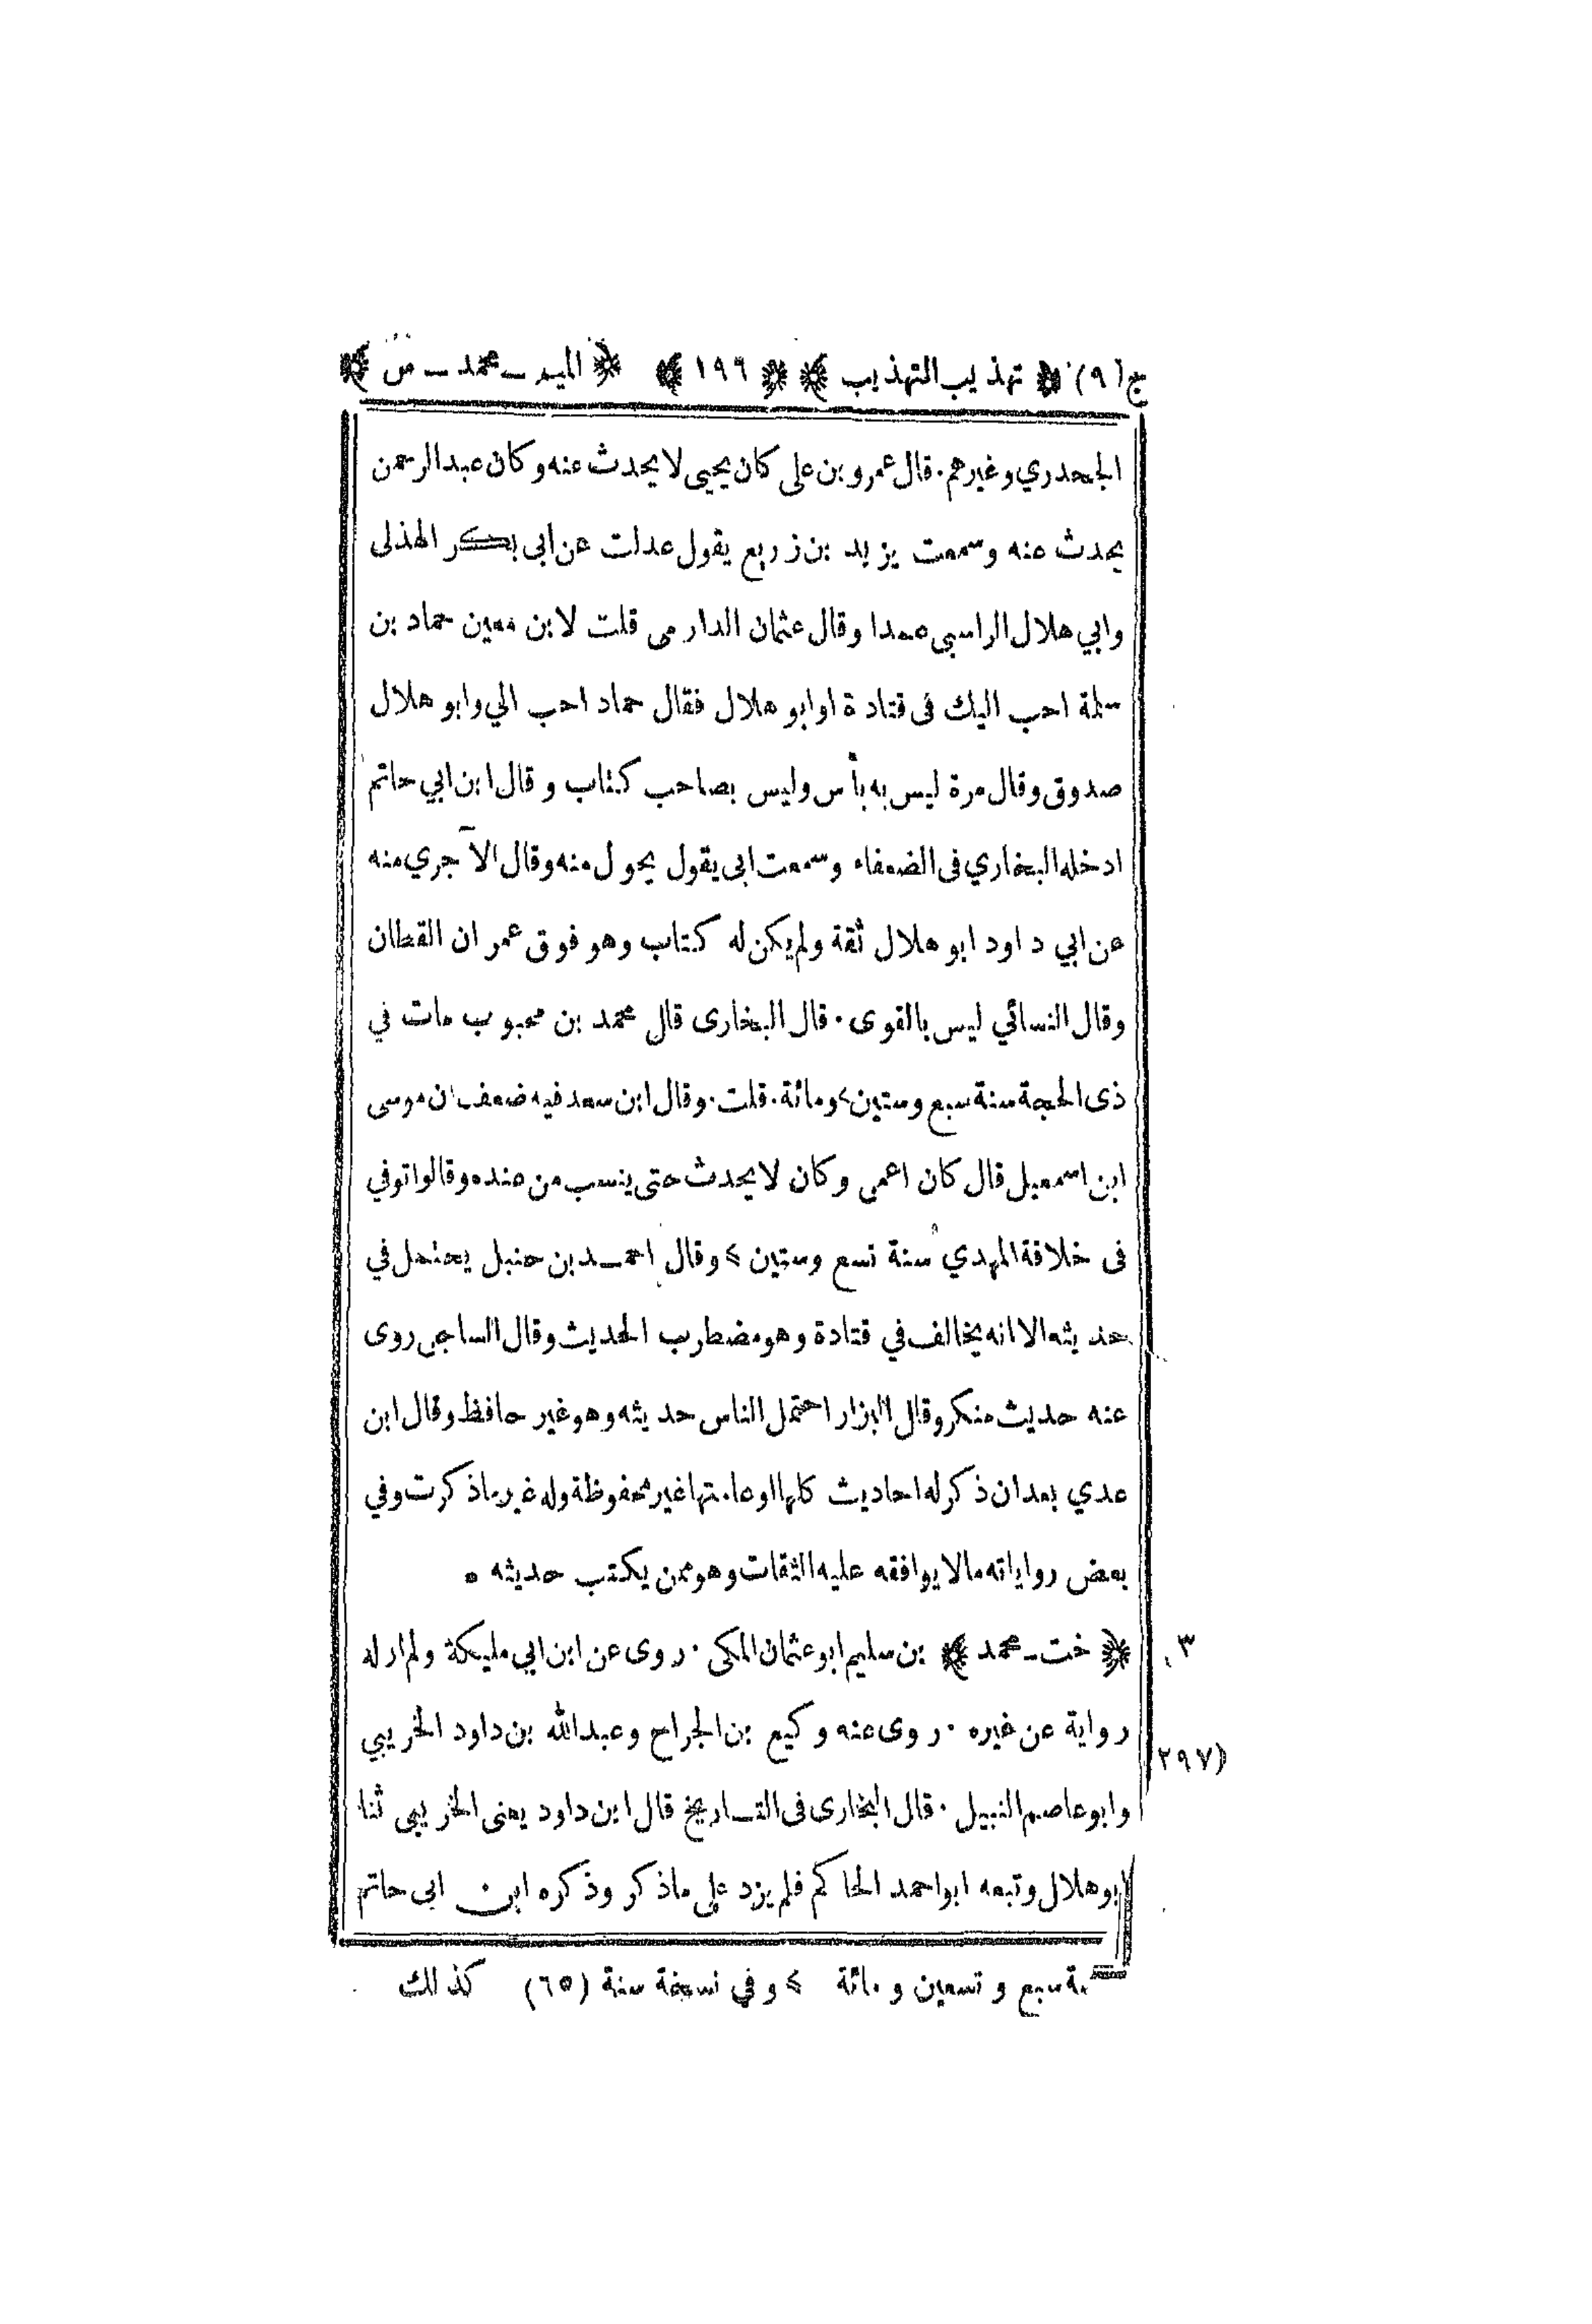 ج(٩) ﴿ تهذيب التهذيب ﴾ ﴿ ١٩٦ ﴾ ﴿ الميم ـ محمد ـ س ﴾
الجحدري وغيرهم. قال عمرو بن على كان يحيى لا يحدث عنه وكان عبدالرحمن
يحدث عنه وسمعت يزيد بن زريع يقول عدلت عن ابى بكر الهذلى
وابي هلال الراسبى عمدا وقال عثمان الدارمى قلت لابن معين حماد بن
سلمة احب اليك فى قتادة او ابو هلال فقال حماد احب الي وابو هلال
صدوق وقال مرة ليس به بأس وليس بصاحب كتاب وقال ابن ابي حاتم
ادخله البخاري فى الضعفاء وسمعت ابى يقول يحول منه وقال الآجري منه
عن ابي داود ابو هلال ثقة ولم يكن له كتاب وهو فوق عمران القطان
وقال النسائي ليس بالقوى. قال البخارى قال محمد بن محبوب مات في
ذى الحجة سنة سبع وستين> ومائة. قلت. وقال ابن سعد فيه ضعف ان موسى
ابن اسمعيل قال كان اعمى وكان لا يحدث حتى ينسب من عنده وقالوا توفي
فى خلافة المهدي سنة تسع وستين > وقال احمد بن حنبل يحتمل في
حديثه الا انه يخالف في قتادة وهو مضطرب الحديث وقال الساجى روى
عنه حديث منكر وقال البزار احتمل الناس حديثه وهو غير حافظ وقال ابن
عدي بعد ان ذكر له احاديث كلها او عامتها غير محفوظة وله غير ما ذكرت وفي
بعض رواياته مالا يوافقه عليه الثقات وهو ممن يكتب حديثه ٥
٣ ﴿ خت ـ محمد ﴾ بن سليم ابو عثمان المكى. روى عن ابن ابي مليكة ولم ار له
رواية عن غيره. روى عنه وكيع بن الجراح وعبد الله بن داود الخريبي
(٢٩٧
وابو عاصم النبيل. قال البخارى فى التاريخ قال ابن داود يعنى الخريبى ثنا
ابو هلال وتبعه ابو احمد الحاكم فلم يزد على ماذكر وذكره ابن ابى حاتم
سبع و تسعين و مائة > و في نسخة سنة (٦٥) كذلك